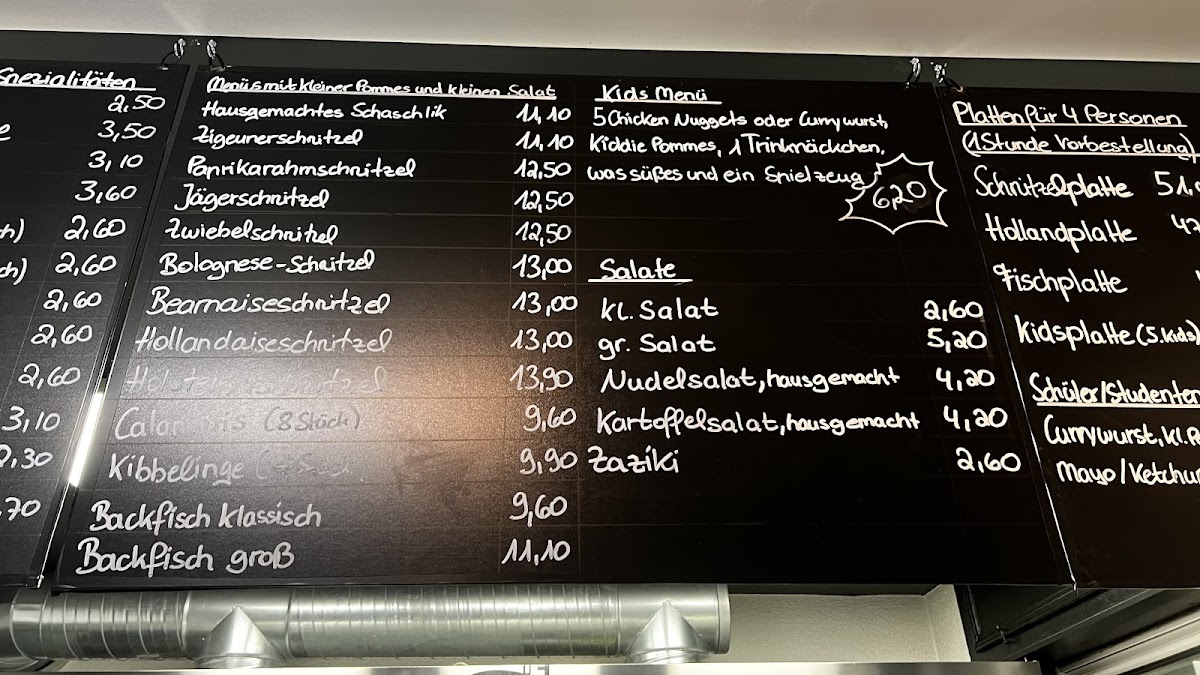 Spezialitäten
2,50
3,50
3,10
3,60
2,60
2,60
2,60
2,60
2,60
3,10
2,30
,70
Menüs mit kleiner Pommes und kleinen Salat
Hausgemachtes Schaschlik 11,10
Zigeunerschnitzel 11,10
Paprikarahmschnitzel 12,50
Jägerschnitzel 12,50
Zwiebelschnitzel 12,50
Bolognese-Schnitzel 13,00
Bearnaiseschnitzel 13,00
Hollandaiseschnitzel 13,00
13,90
Calamaris (8 Stück) 9,60
Kibbelinge 9,90
Backfisch klassisch 9,60
Backfisch groß 11,10
Kids Menü
5 Chicken Nuggets oder Currywurst,
Kiddie Pommes, 1 Trinkpäckchen,
was süßes und ein Spielzeug
6,20
Salate
kl. Salat 2,60
gr. Salat 5,20
Nudelsalat, hausgemacht 4,20
Kartoffelsalat, hausgemacht 4,20
Zaziki 2,60
Platten für 4 Personen
(1 Stunde Vorbestellung)
Schnitzelplatte 51,
Hollandplatte 47
Fischplatte
Kidsplatte (5.Kids)
Schüler/Studenten
Currywurst, kl. P
Mayo/Ketchu